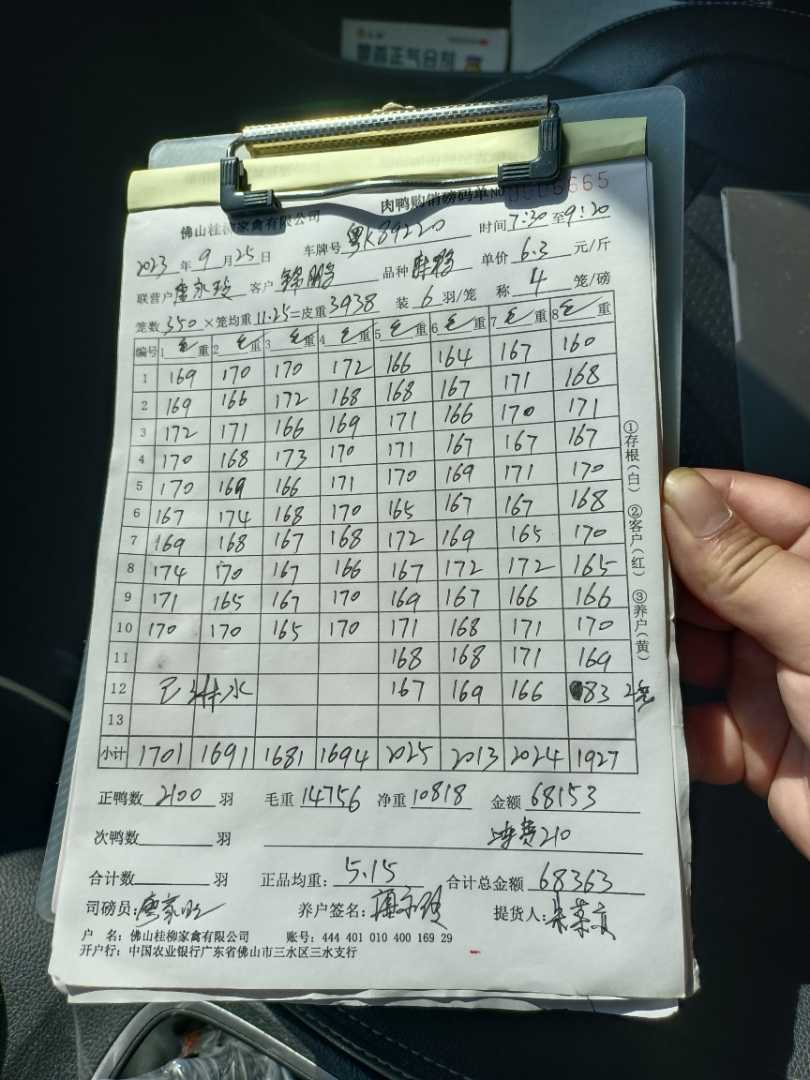 肉鸭购销磅码单 No 0006665
佛山桂柳家禽有限公司
2023 年 9 月 25 日 车牌号 粤K89220 时间 7:30 至 9:20
联营户 客户 锦鹏 品种 单价 6.3 元/斤
笼数 350 ×笼均重 11.25 =皮重 3938 装 6 羽/笼 称 4 笼/磅
编号 1 毛重 2 毛重 3 毛重 4 毛重 5 毛重 6 毛重 7 毛重 8 毛重
1 169 170 170 172 166 164 167 160
2 169 166 172 168 168 167 171 168
3 172 171 166 169 171 166 170 171
4 170 168 173 170 171 167 167 167
5 170 169 166 171 170 169 171 170
6 167 174 168 170 165 167 167 168
7 169 168 167 168 172 169 165 170
8 174 170 167 166 167 172 172 165
9 171 165 167 170 169 167 166 166
10 170 170 165 170 171 168 171 170
11 168 168 171 169
12 已 水 167 169 166 83 2笼
13
小计 1701 1691 1681 1694 2025 2013 2024 1927
①存根(白) ②客户(红) ③养户(黄)
正鸭数 2100 羽 毛重 14756 净重 10818 金额 68153
次鸭数 羽 费210
合计数 羽 正品均重: 5.15 合计总金额 68363
司磅员: 养户签名: 提货人:
户 名: 佛山桂柳家禽有限公司 账号: 444 401 010 400 169 29
开户行: 中国农业银行广东省佛山市三水区三水支行